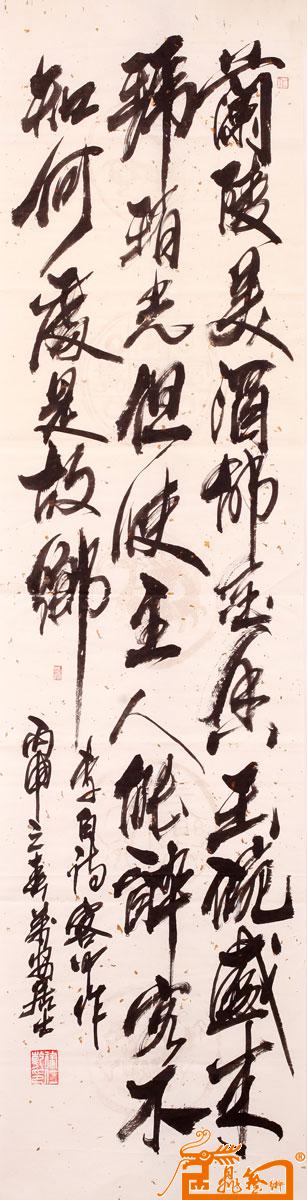 蘭陵美酒郁金香玉碗盛来
琥珀光但使主人能醉客不
知何處是故鄉
李白詩客中作
丙申之春